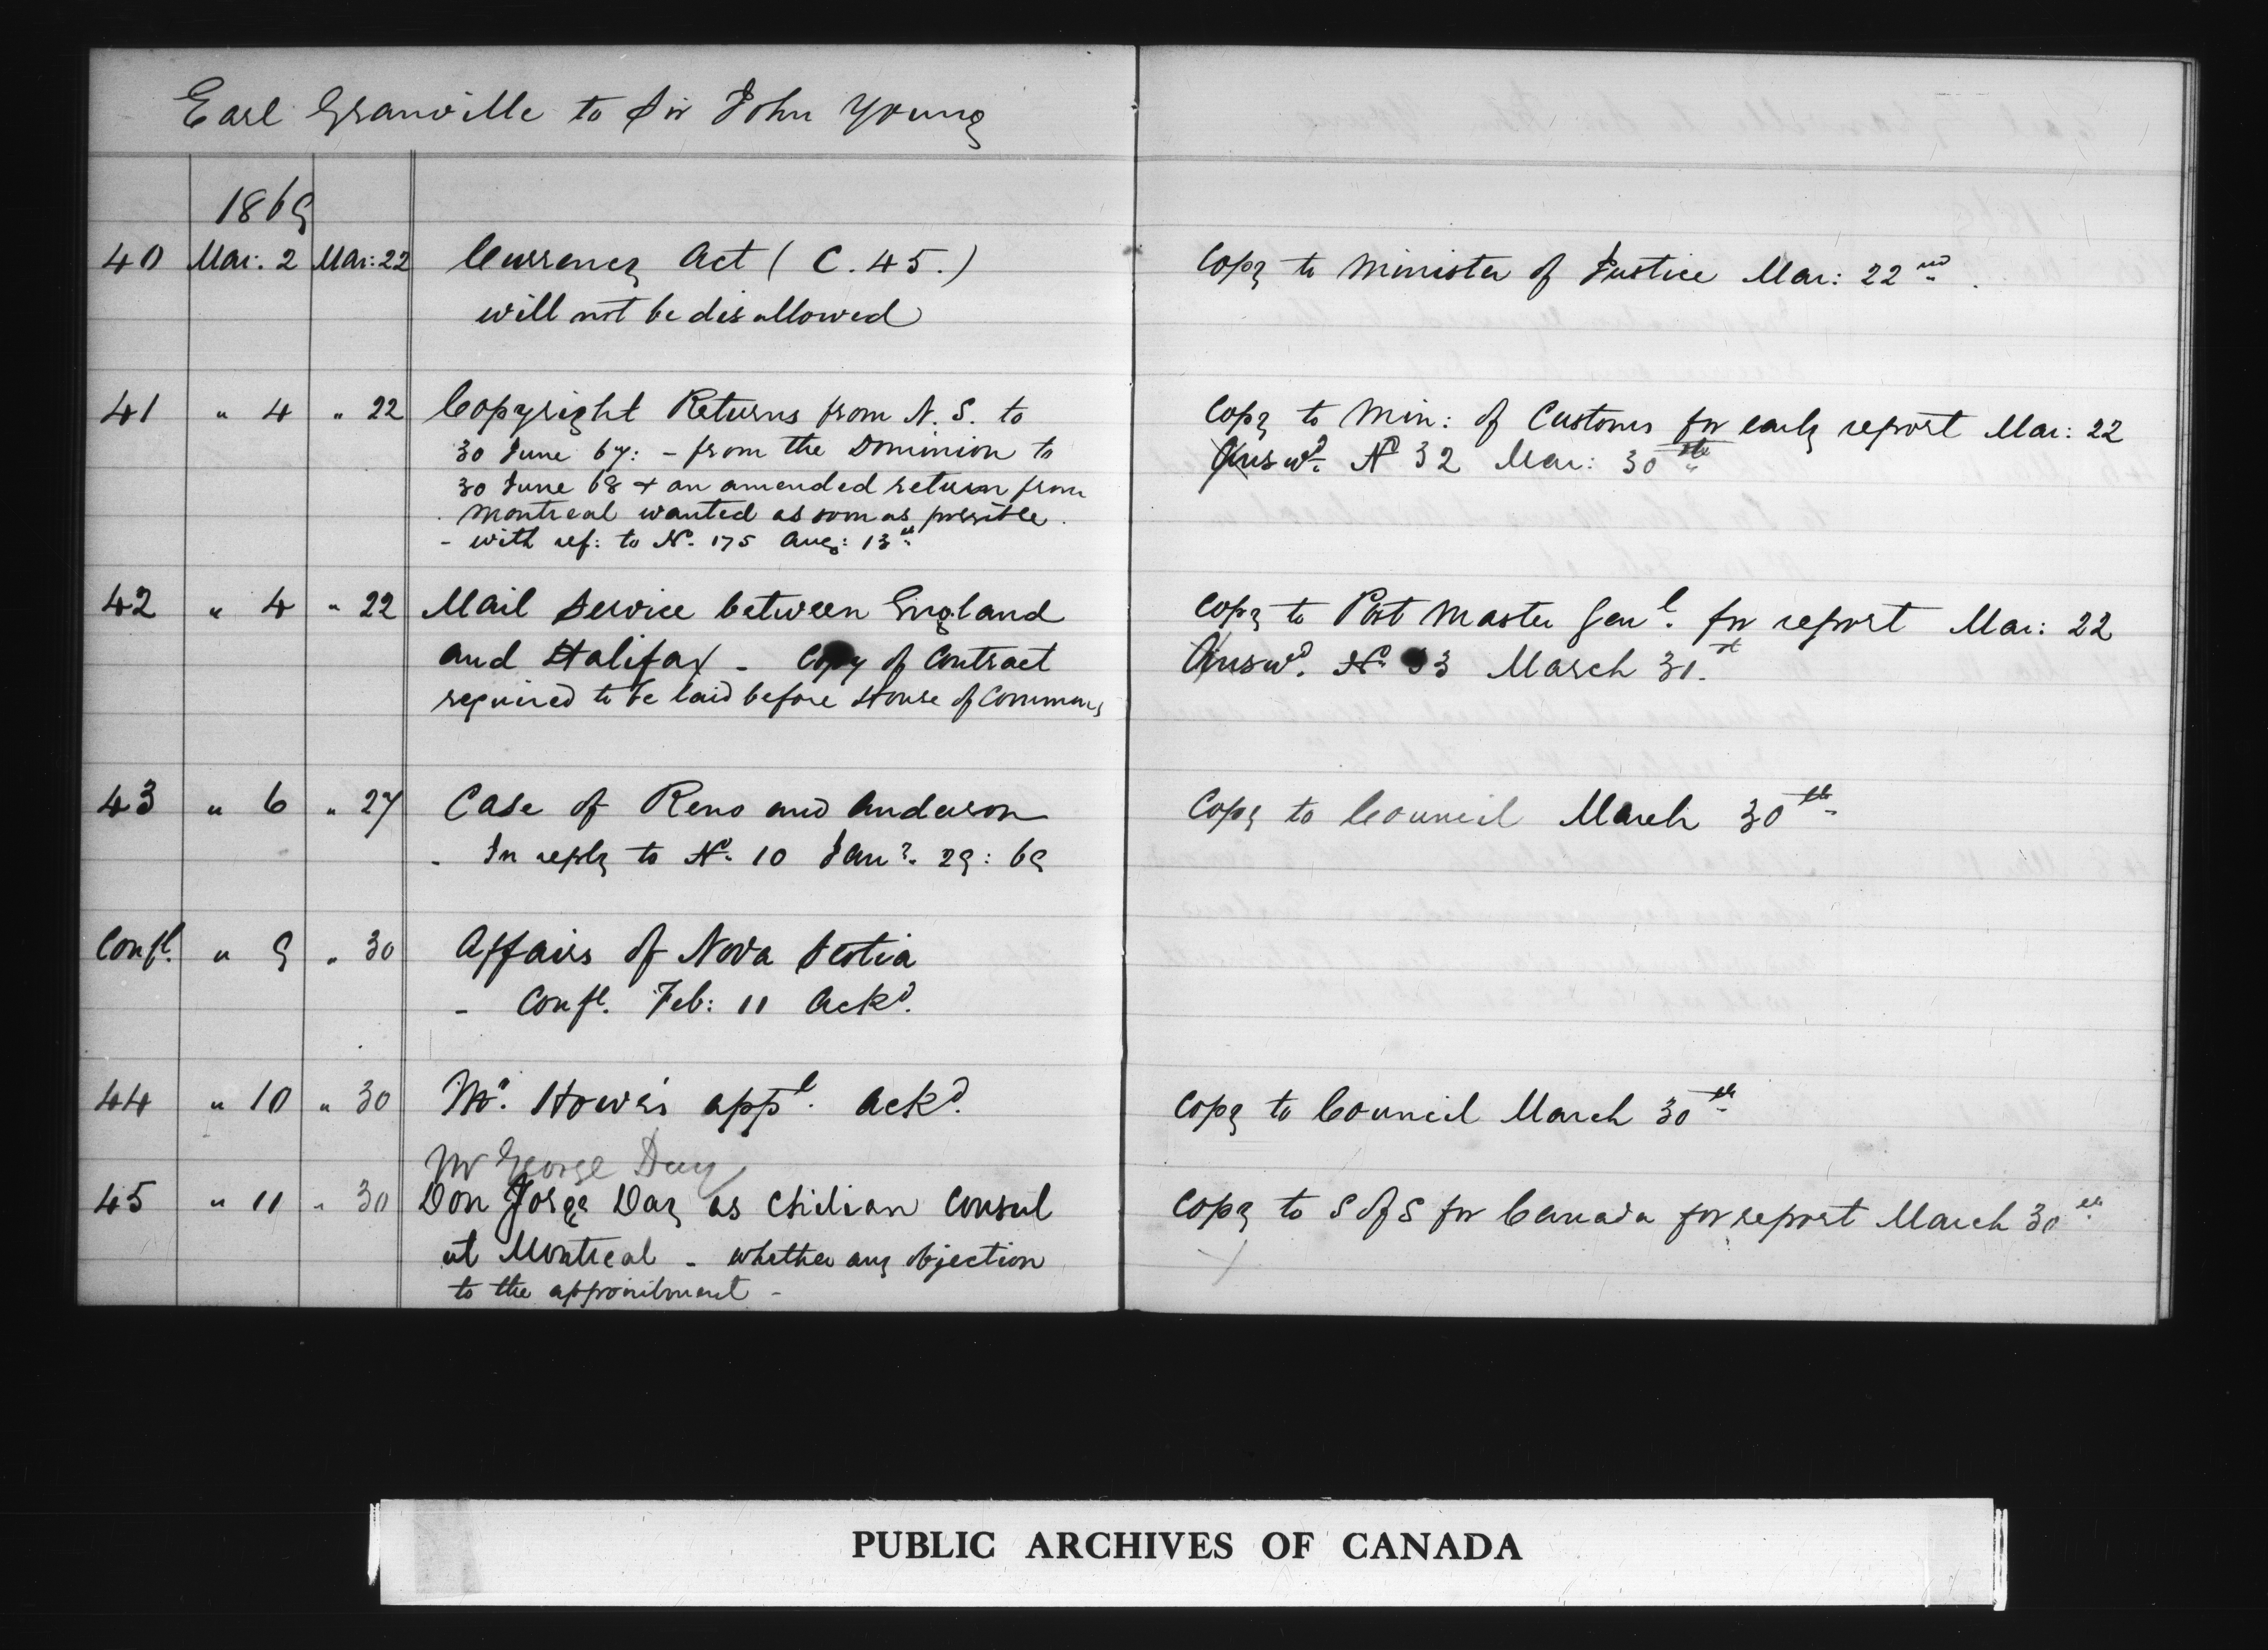 Earl Granville to Sir John Young
1869
40 Mar: 2 Mar: 22 Currency Act (C. 45.) Copy to Minister of Justice Mar: 22nd.
will not be disallowed
41 " 4 " 22 Copyright Returns from N. S. to Copy to Min: of Customs for early report Mar: 22
30 June 67: - from the Dominion to Answd. No 32 Mar: 30th
30 June 68 + an amended return from
Montreal wanted as soon as possible.
- with ref: to No. 175 Aug: 13th
42 " 4 " 22 Mail Service between England Copy to Post Master Genl. for report Mar: 22
and Halifax - Copy of Contract Answd. No. 33 March 31.st
required to be laid before House of Commons
43 " 6 " 27 Case of Reno and Anderson Copy to Council March 30th
- In reply to No. 10 Jany. 29: 69
Confl. " 9 " 30 Affairs of Nova Scotia
- Confl. Feb: 11 Ackd.
44 " 10 " 30 Mr. Howe's appt. ackd. Copy to Council March 30th
Mr George Day
45 " 11 " 30 Don Jorge Day as Chilian Consul Copy to S of S for Canada for report March 30th
at Montreal - whether any objection
to the appointment -
PUBLIC ARCHIVES OF CANADA